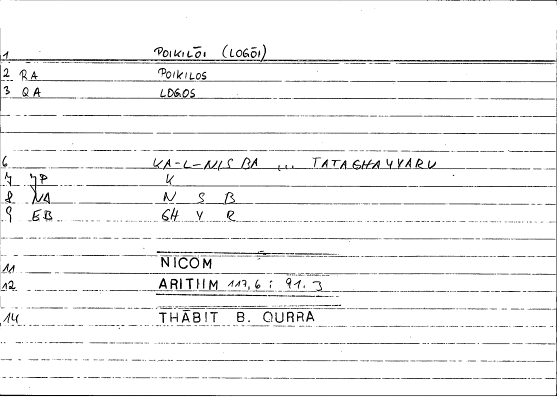 1 POIKILŌI (LOGŌI)
2 RA POIKILOS
3 QA LOGOS
6 KA-L-NISBA ... TATAGHAYYARU
7 JP K
8 NA N S B
9 EB GH Y R
11 NICOM
12 ARITIIM 117,6 : 91.3
14 THĀBIT B. QURRA